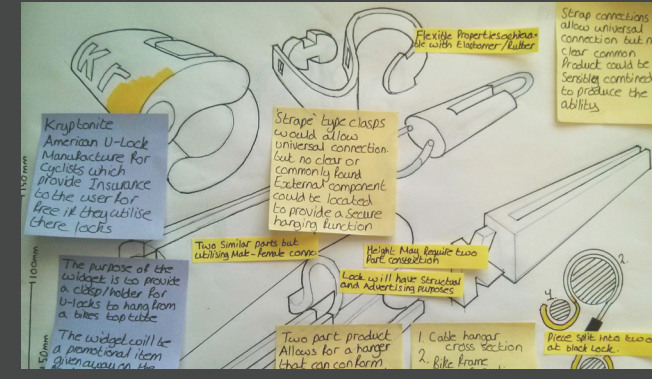 Strap connections
allow universal
connection but n
clear common
Product could be
Sensibley combined
to produce the
ability
Flexible Properties achiea-
ble with Elastomer/Rubber
Kr
Kryptonite
American U-Lock
Manufacture for
Cyclists which
provide Insurance
to the user for
free if they utilise
there locks
'Strape' type clasps
would allow
universal connection.
but no clear or
commonly found
External component
could be located
to provide a secure
hanging function
150mm
Two Similar parts but
utilising Male-female conne
Height May Require two
Part construction
Lock will have Structual
and Advertising purposes
100mm
The purpose of the
widget is too provide
a clasp/holder for
U-locks to hang from
a bikes toptube
The widget will be
a promotional item
given away on the
50mm
Two part product
Allows for a hanger
that can conform,
1. Cable hangar
cross section
2. Bike Frame
2.
4.
Piece split into two
at block Lock.